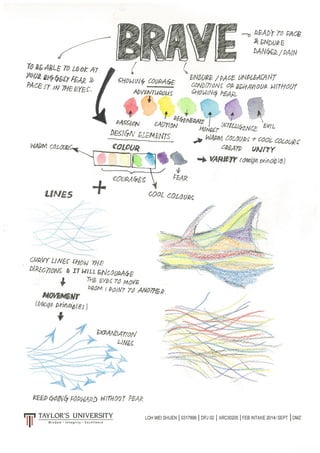 BRAVE
READY TO FACE
& ENDURE
DANGER/PAIN
TO BE ABLE TO LOOK AT
YOUR BIGGEST FEAR &
FACE IT IN THE EYES.
SHOWING COURAGE
ADVENTUROUS
ENDURE / FACE UNPLEASANT
CONDITIONS OR BEHAVIOUR WITHOUT
SHOWING FEAR
PASSION
CAUTION
REGENERATE
HONEST
INTELLIGENCE
EVIL
DESIGN ELEMENTS
WARM COLOURS
COLOUR
WARM COLOURS + COOL COLOURS
CREATE UNITY
VARIETY (design principles)
COURAGES
FEAR
COOL COLOURS
+
LINES
CURVY LINES SHOW THE
DIRECTIONS & IT WILL ENCOURAGE
THE EYES TO MOVE
FROM 1 POINT TO ANOTHER.
MOVEMENT
(design principles)
EXPANDATION
LINES
KEEP GOING FORWARD WITHOUT FEAR
TAYLOR'S UNIVERSITY
Wisdom • Integrity • Excellence
LOH WEI SHUEN | 0317966 | DFJ 02 | ARC30205 | FEB INTAKE 2014/ SEPT | DMZ